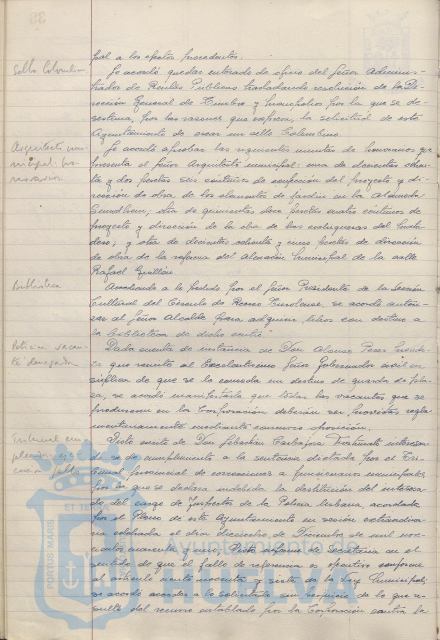 pal a los efectos procedentes.
Sello Colombino
Se acordó quedar enterado de oficio del Señor Adminis-
trador de Rentas Públicas trasladando resolución de la Di-
rección General de Timbre y Monopolios por la que se de-
sestima, por las razones que expresa, la solicitud de este
Ayuntamiento de crear un sello Colombino.
Arquitecto mu-
nicipal: ho-
norarios
Se acordó aprobar las siguientes minutas de honorarios que
presenta el Señor Arquitecto municipal: una de doscientas ochen-
ta y dos pesetas seis céntimos de confección del proyecto y di-
rección de obra de los elementos de jardín en la Alameda
Sundheim; otra de quinientas doce pesetas cuatro céntimos de
proyecto y dirección de la obra de las
y otra de doscientas ochenta y cinco pesetas de dirección
de obra de la reforma del Almacén Municipal de la calle
Rafael Guillén.
Biblioteca
Accediendo a lo pedido por el Señor Presidente de la Sección
Cultural del Círculo de Recreo se acordó autori-
zar al Señor Alcalde para adquirir libros con destino a
la biblioteca de dicho
Dada cuenta de instancia de Don Alonso Pérez
que remite el Excelentísimo Señor Gobernador civil en
súplica de que se le conceda un destino de guarda de
se acordó manifestarle que todas las vacantes que se
produzcan en la Corporación deberán ser provistas regla-
mentariamente mediante concurso oposición.
Visto escrito de Don Sebastián Carbajosa interesan-
do se dé cumplimiento a la sentencia dictada por el Tri-
bunal provincial de correcciones a funcionarios municipales,
por la que se declara indebida la destitución del interesa-
do del cargo de Inspector de la Policía Urbana, acordada
por el Pleno de este Ayuntamiento en sesión extraordina-
ria celebrada el día dieciocho de Diciembre de mil nove-
cientos cuarenta y uno. Visto informe de Secretaría en el
sentido de que el fallo de referencia es ejecutivo conforme
al artículo ciento noventa y siete de la Ley Municipal,
se acordó acceder a lo solicitado sin perjuicio de lo que re-
sulte del recurso entablado por la Corporación contra la
PORTUS MARIS
ET TE
Ayuntamiento de
HUELVA